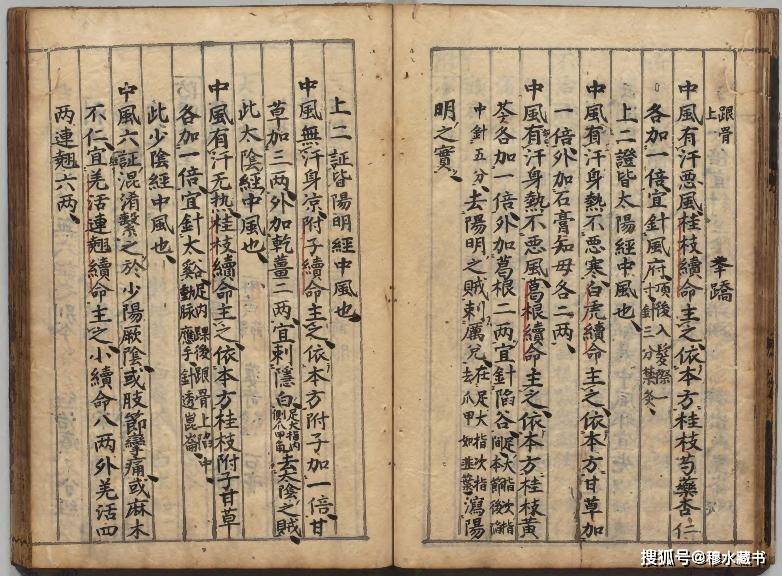 跟骨上
蹻
中風有汗悪風桂枝續命主之依本方桂枝芍藥杏仁
各加一倍宜針風府項後入髮際一寸針三分禁灸
上二證皆太陽經中風也
中風有汗身熱不悪寒白虎續命主之依本方甘草加
一倍外加石膏知母各二两
中風有汗身熱不悪風葛根續命主之依本方桂枝黄
芩各加一倍外加葛根二两宜針陷谷足大指次指間本節後陷
中針五分去陽明之賊刺厲兌在足大指次指去爪甲如韭葉瀉陽
明之實
上二証皆陽明經中風也
中風無汗身凉附子續命主之依本方附子加一倍甘
草加三两外加乾薑二两宜刺隱白足大指内側爪甲角去太陰之賊
此太陰經中風也
中風有汗无热桂枝續命主之依本方桂枝附子甘草
各加一倍宜針太谿足内踝後跟骨上陷中動脉應手針透崑崙
此少陰經中風也
中風六証混淆繫之於少陽厥陰或肢節攣痛或麻木
不仁宜羌活連翹續命主之小續命八两外羌活四
两連翹六两
搜狐号@穆水藏书